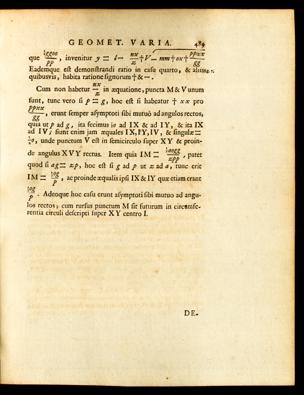 GEOMET. VARIA. 489
que llgoo/pp, invenitur y = l — nx/z † V — mm † ox † ppxx/gg
Eademque est demonstrandi ratio in casu quarto, &
quibusvis, habita ratione signorum † & –.
Cum non habetur nx/z in æquatione, puncta M & V unum
sunt, tunc vero si p = g, hoc est si habeatur † xx pro
ppxx/gg, erunt semper asymptoti sibi mutuo ad angulos rectos,
quia ut p ad g, ita secimus io ad IX & ad IY, & ita IX
ad IV; sunt enim jam æquales IX, IY, IV, & singulæ =
, unde punctum V est in semicirculo super XY & proin-
de angulus XVY rectus. Item quia IM = , patet
quod si ag = zp, hoc est si g ad p ut z ad a, tunc erit
IM = log/p, ac proinde æqualis ipsi IX & IY quæ etiam erant
log/p. Adeoque hoc casu erunt asymptoti sibi mutuo ad angu-
los rectos; cum rursus punctum M sit futurum in circumfe-
rentia circuli descripti super XY centro I.
DE-